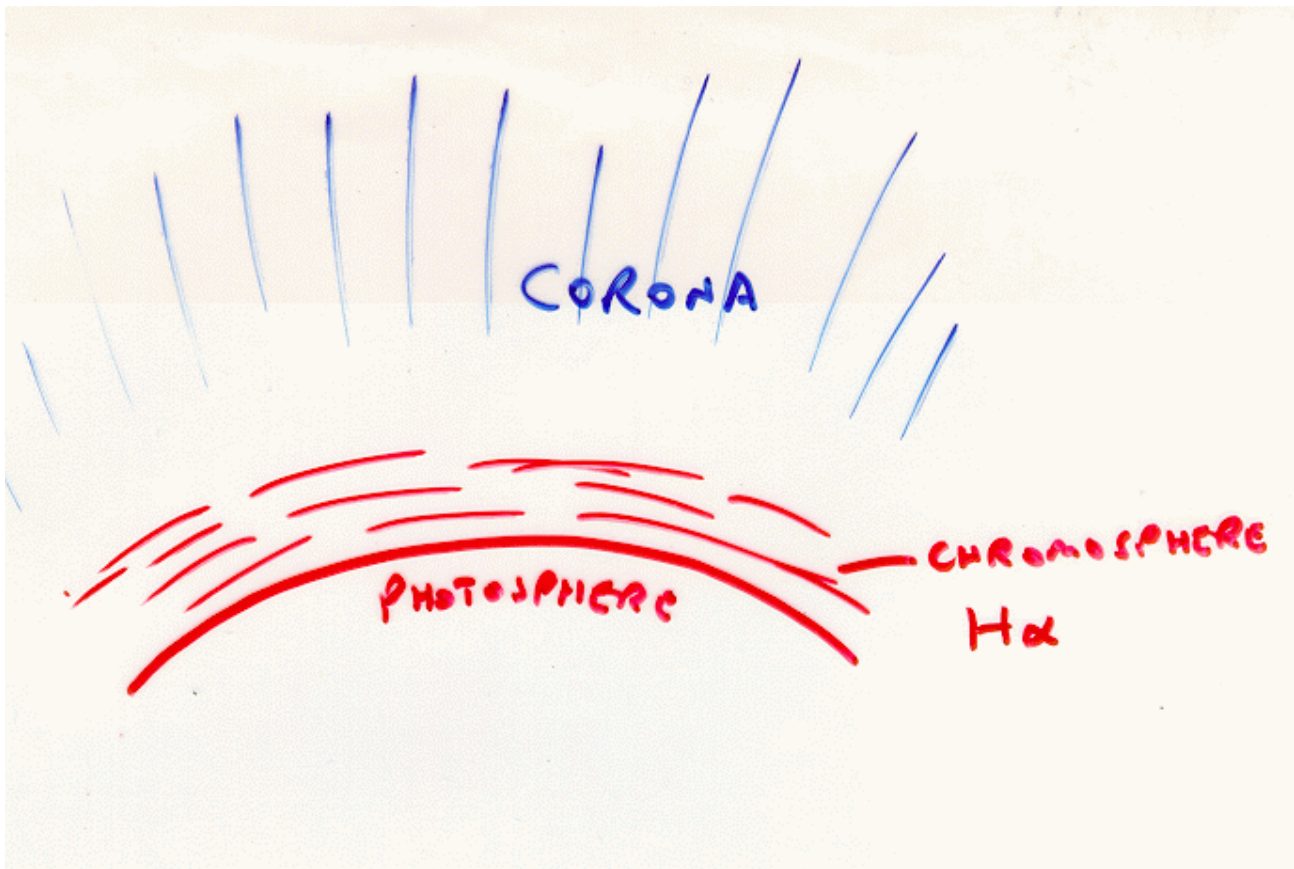 CORONA
PHOTOSPHERE
CHROMOSPHERE
Hα